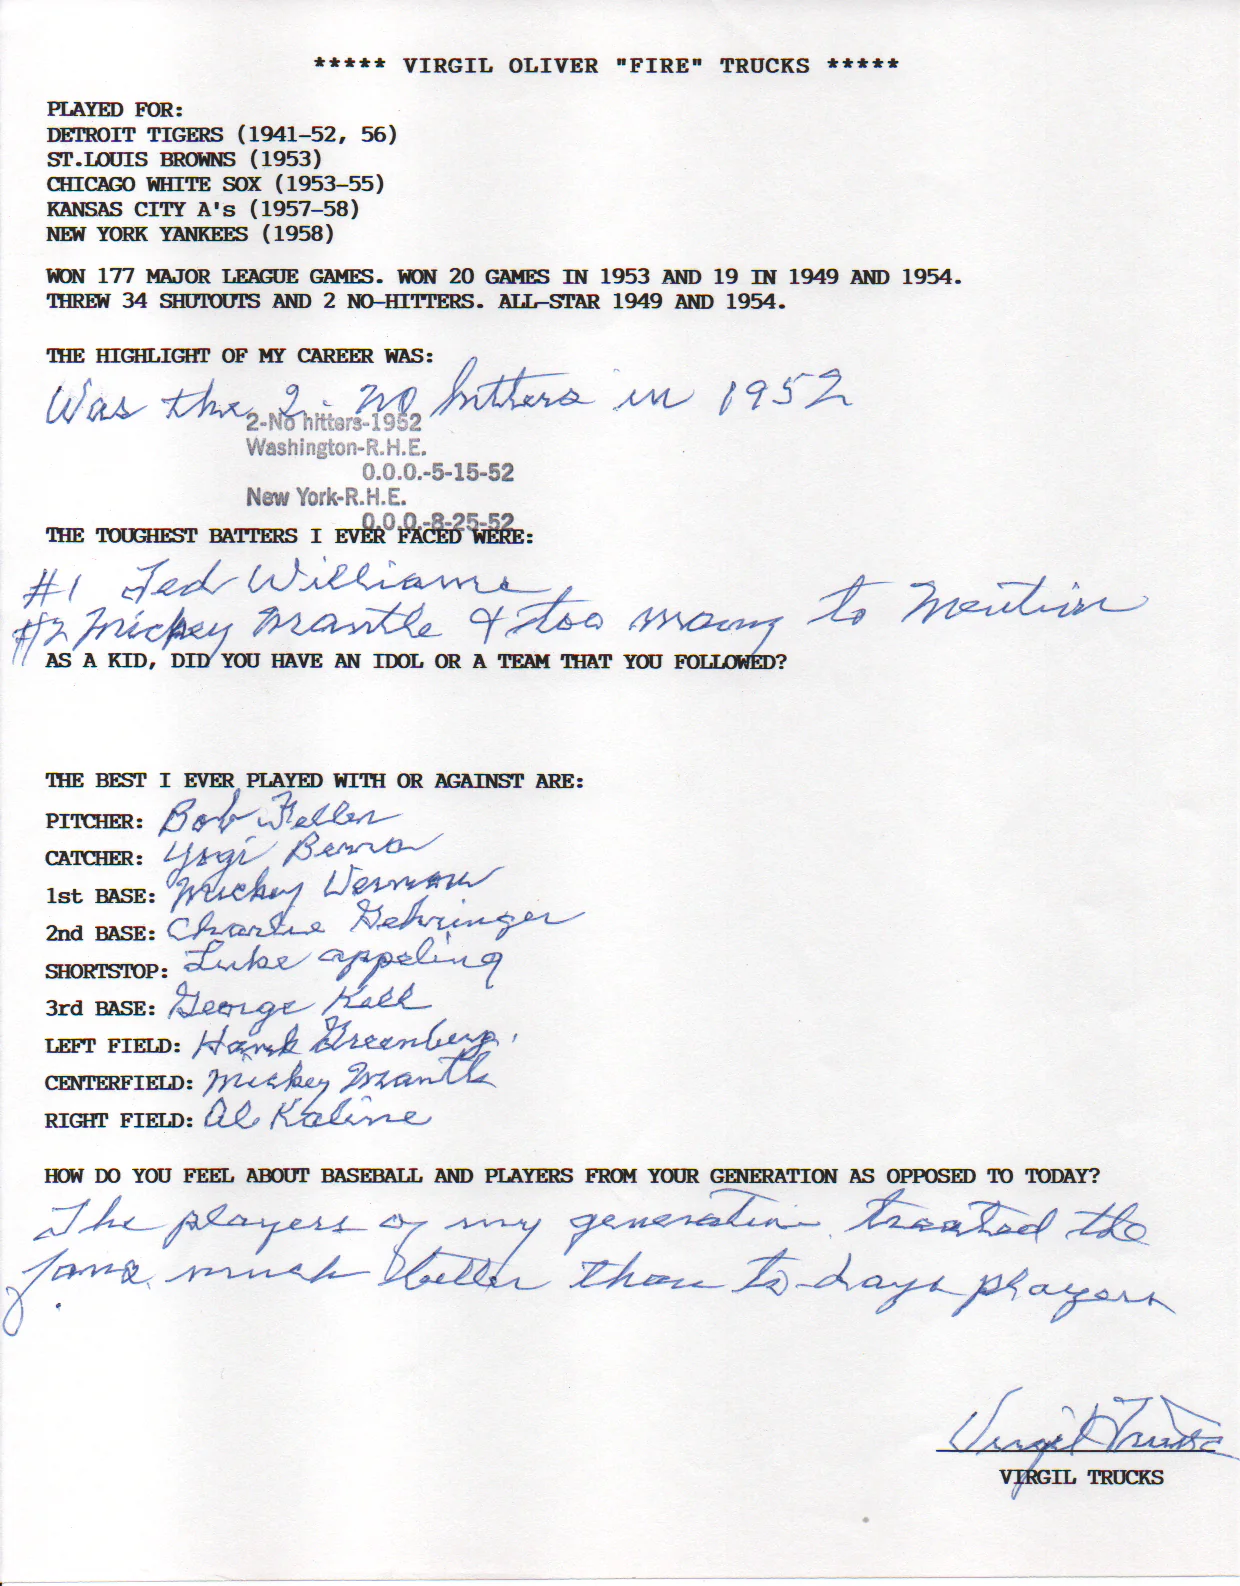 ***** VIRGIL OLIVER "FIRE" TRUCKS *****
PLAYED FOR:
DETROIT TIGERS (1941-52, 56)
ST.LOUIS BROWNS (1953)
CHICAGO WHITE SOX (1953-55)
KANSAS CITY A's (1957-58)
NEW YORK YANKEES (1958)
WON 177 MAJOR LEAGUE GAMES. WON 20 GAMES IN 1953 AND 19 IN 1949 AND 1954.
THREW 34 SHUTOUTS AND 2 NO-HITTERS. ALL-STAR 1949 AND 1954.
THE HIGHLIGHT OF MY CAREER WAS:
Was the 2- no hitters in 1952
2-No hitters-1952
Washington-R.H.E.
0.0.0.-5-15-52
New York-R.H.E.
0.0.0.-8-25-52
THE TOUGHEST BATTERS I EVER FACED WERE:
#1 Ted Williams
#2 Mickey Mantle & too many to Mention
AS A KID, DID YOU HAVE AN IDOL OR A TEAM THAT YOU FOLLOWED?
THE BEST I EVER PLAYED WITH OR AGAINST ARE:
PITCHER: Bob Feller
CATCHER: Yogi Berra
1st BASE: Mickey Vernon
2nd BASE: Charlie Gehringer
SHORTSTOP: Luke appling
3rd BASE: George Kell
LEFT FIELD: Hank Greenberg.
CENTERFIELD: Mickey Mantle
RIGHT FIELD: Al Kaline
HOW DO YOU FEEL ABOUT BASEBALL AND PLAYERS FROM YOUR GENERATION AS OPPOSED TO TODAY?
The players of my generation treated the
fans much better than to-days players
Virgil Trucks
VIRGIL TRUCKS